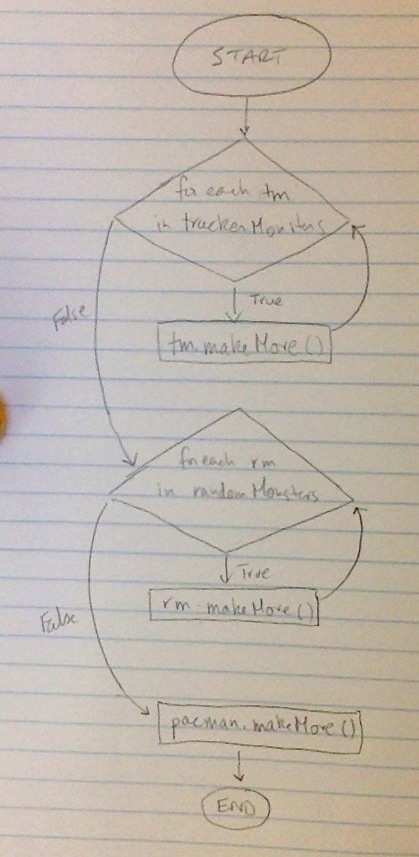 START
for each tm
in trackerMonsters
True
False
tm.makeMove()
for each rm
in randomMonsters
True
rm.makeMove()
False
pacman.makeMove()
END